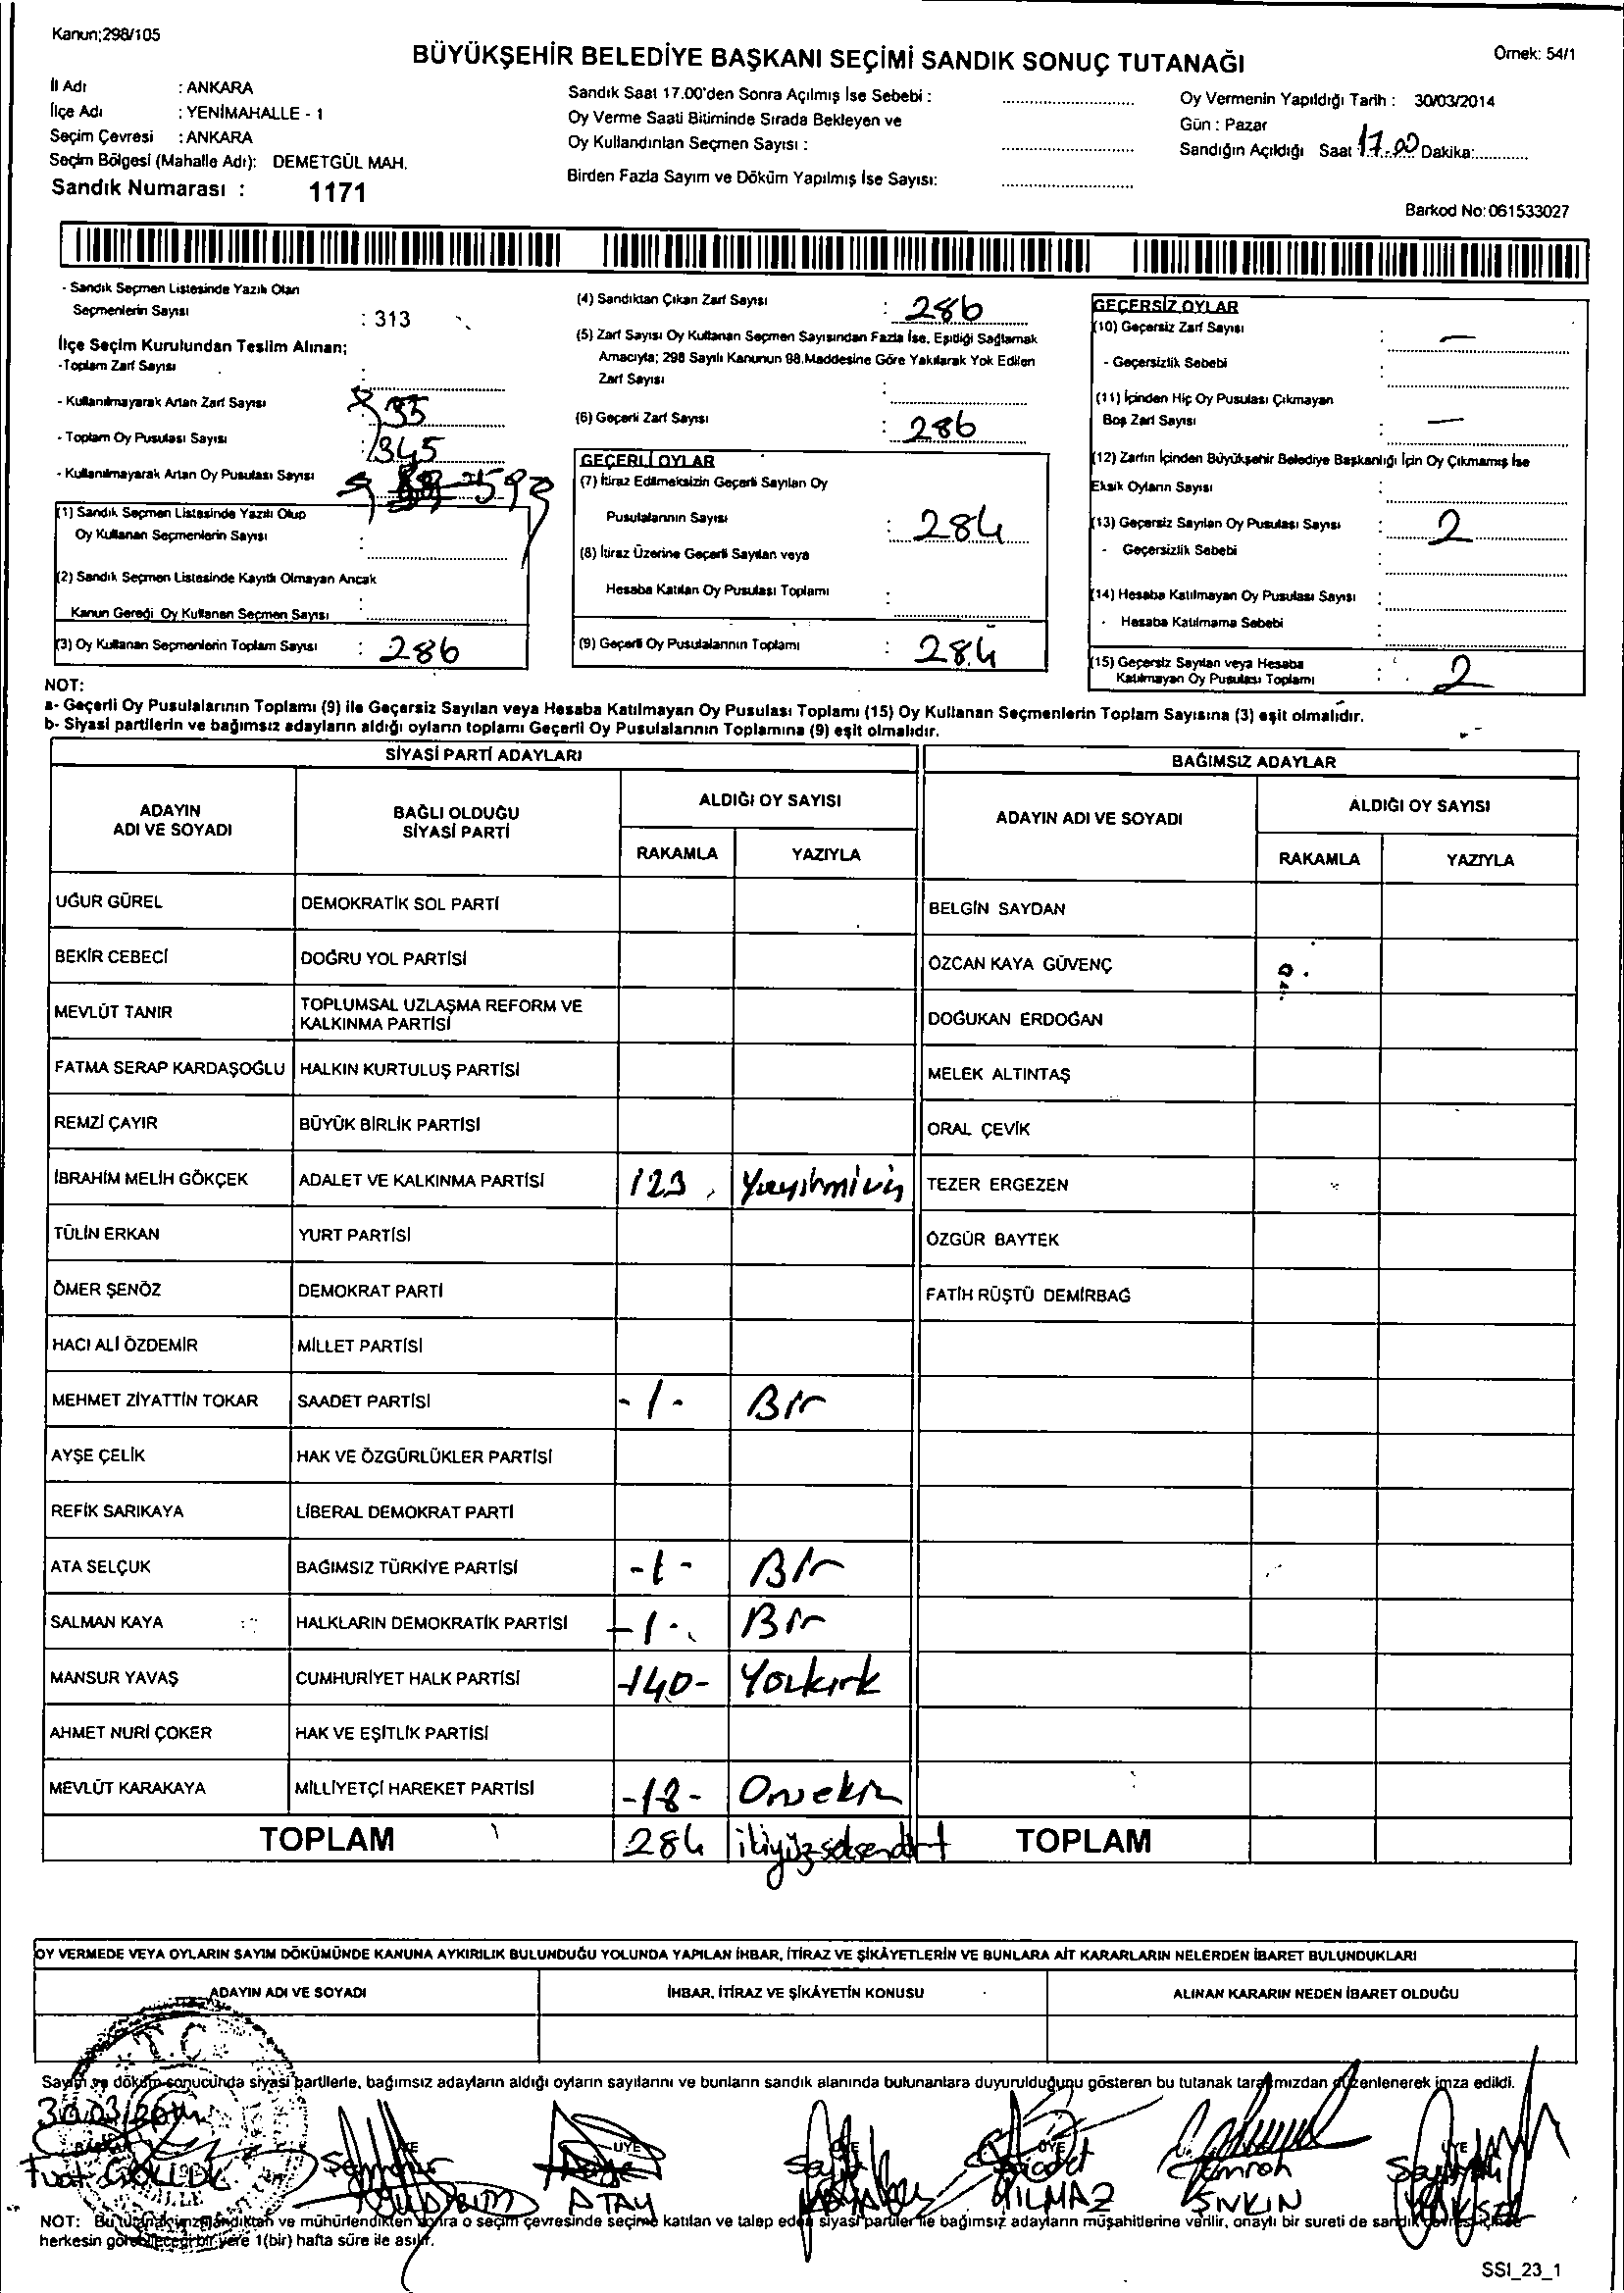 Kanun;298/105
BÜYÜKŞEHİR BELEDİYE BAŞKANI SEÇİMİ SANDIK SONUÇ TUTANAĞI
Örnek: 54/1
İl Adı : ANKARA
İlçe Adı : YENİMAHALLE - 1
Seçim Çevresi : ANKARA
Seçim Bölgesi (Mahalle Adı): DEMETGÜL MAH.
Sandık Numarası : 1171
Sandık Saat 17.00'den Sonra Açılmış İse Sebebi :
Oy Verme Saati Bitiminde Sırada Bekleyen ve
Oy Kullandırılan Seçmen Sayısı :
Birden Fazla Sayım ve Döküm Yapılmış İse Sayısı:
Oy Vermenin Yapıldığı Tarih : 30/03/2014
Gün : Pazar
Sandığın Açıldığı Saat 17.00 Dakika:
Barkod No: 061533027
- Sandık Seçmen Listesinde Yazılı Olan
Seçmenlerin Sayısı : 313
İlçe Seçim Kurulundan Teslim Alınan;
-Toplam Zarf Sayısı :
- Kullanılmayarak Artan Zarf Sayısı
- Toplam Oy Pusulası Sayısı : 345
- Kullanılmayarak Artan Oy Pusulası Sayısı
(1) Sandık Seçmen Listesinde Yazılı Olup
Oy Kullanan Seçmenlerin Sayısı :
(2) Sandık Seçmen Listesinde Kayıtlı Olmayan Ancak
Kanun Gereği Oy Kullanan Seçmen Sayısı :
(3) Oy Kullanan Seçmenlerin Toplam Sayısı : 286
(4) Sandıktan Çıkan Zarf Sayısı : 286
(5) Zarf Sayısı Oy Kullanan Seçmen Sayısından Fazla İse, Eşitliği Sağlamak
Amacıyla; 298 Sayılı Kanunun 98.Maddesine Göre Yakılarak Yok Edilen
Zarf Sayısı :
(6) Geçerli Zarf Sayısı : 286
GEÇERLİ OYLAR
(7) İtiraz Edilmeksizin Geçerli Sayılan Oy
Pusulalarının Sayısı : 284
(8) İtiraz Üzerine Geçerli Sayılan veya
Hesaba Katılan Oy Pusulası Toplamı :
(9) Geçerli Oy Pusulalarının Toplamı : 284
GEÇERSİZ OYLAR
(10) Geçersiz Zarf Sayısı : —
- Geçersizlik Sebebi :
(11) İçinden Hiç Oy Pusulası Çıkmayan
Boş Zarf Sayısı : —
(12) Zarfın İçinden Büyükşehir Belediye Başkanlığı İçin Oy Çıkmamış İse
Eksik Oyların Sayısı :
(13) Geçersiz Sayılan Oy Pusulası Sayısı : 2
- Geçersizlik Sebebi :
(14) Hesaba Katılmayan Oy Pusulası Sayısı :
- Hesaba Katılmama Sebebi :
(15) Geçersiz Sayılan veya Hesaba
Katılmayan Oy Pusulası Toplamı : 2
NOT:
a- Geçerli Oy Pusulalarının Toplamı (9) ile Geçersiz Sayılan veya Hesaba Katılmayan Oy Pusulası Toplamı (15) Oy Kullanan Seçmenlerin Toplam Sayısına (3) eşit olmalıdır.
b- Siyasi partilerin ve bağımsız adayların aldığı oyların toplamı Geçerli Oy Pusulalarının Toplamına (9) eşit olmalıdır.
SİYASİ PARTİ ADAYLARI BAĞIMSIZ ADAYLAR
ADAYIN ADI VE SOYADI BAĞLI OLDUĞU SİYASİ PARTİ ALDIĞI OY SAYISI ADAYIN ADI VE SOYADI ALDIĞI OY SAYISI
RAKAMLA YAZIYLA RAKAMLA YAZIYLA
UĞUR GÜREL DEMOKRATİK SOL PARTİ BELGİN SAYDAN
BEKİR CEBECİ DOĞRU YOL PARTİSİ ÖZCAN KAYA GÜVENÇ
MEVLÜT TANIR TOPLUMSAL UZLAŞMA REFORM VE KALKINMA PARTİSİ DOĞUKAN ERDOĞAN
FATMA SERAP KARDAŞOĞLU HALKIN KURTULUŞ PARTİSİ MELEK ALTINTAŞ
REMZİ ÇAYIR BÜYÜK BİRLİK PARTİSİ ORAL ÇEVİK
İBRAHİM MELİH GÖKÇEK ADALET VE KALKINMA PARTİSİ 123 TEZER ERGEZEN
TÜLİN ERKAN YURT PARTİSİ ÖZGÜR BAYTEK
ÖMER ŞENÖZ DEMOKRAT PARTİ FATİH RÜŞTÜ DEMİRBAĞ
HACI ALİ ÖZDEMİR MİLLET PARTİSİ
MEHMET ZİYATTİN TOKAR SAADET PARTİSİ -1- Bir
AYŞE ÇELİK HAK VE ÖZGÜRLÜKLER PARTİSİ
REFİK SARIKAYA LİBERAL DEMOKRAT PARTİ
ATA SELÇUK BAĞIMSIZ TÜRKİYE PARTİSİ -1- Bir
SALMAN KAYA HALKLARIN DEMOKRATİK PARTİSİ -1- Bir
MANSUR YAVAŞ CUMHURİYET HALK PARTİSİ -140- Yüzkırk
AHMET NURİ ÇOKER HAK VE EŞİTLİK PARTİSİ
MEVLÜT KARAKAYA MİLLİYETÇİ HAREKET PARTİSİ -18- Onsekiz
TOPLAM 284 ikiyüzseksendört TOPLAM
OY VERMEDE VEYA OYLARIN SAYIM DÖKÜMÜNDE KANUNA AYKIRILIK BULUNDUĞU YOLUNDA YAPILAN İHBAR, İTİRAZ VE ŞİKÂYETLERİN VE BUNLARA AİT KARARLARIN NELERDEN İBARET BULUNDUKLARI
ADAYIN ADI VE SOYADI İHBAR, İTİRAZ VE ŞİKÂYETİN KONUSU ALINAN KARARIN NEDEN İBARET OLDUĞU
T.C.
Sayım ve döküm sonucunda siyasi partilerle, bağımsız adayların aldığı oyların sayılarını ve bunların sandık alanında bulunanlara duyurulduğunu gösteren bu tutanak tarafımızdan düzenlenerek imza edildi.
30.03.2014
BAŞKAN ÜYE ÜYE ÜYE ÜYE ÜYE ÜYE
Fuat
ATAY YILMAZ
NOT: Bu tutanak imzalandıktan ve mühürlendikten sonra o seçim çevresinde seçime katılan ve talep eden siyasi partiler ile bağımsız adayların müşahitlerine verilir, onaylı bir sureti de sandık çevresi içinde
herkesin görebileceği bir yere 1(bir) hafta süre ile asılır.
SSI_23_1